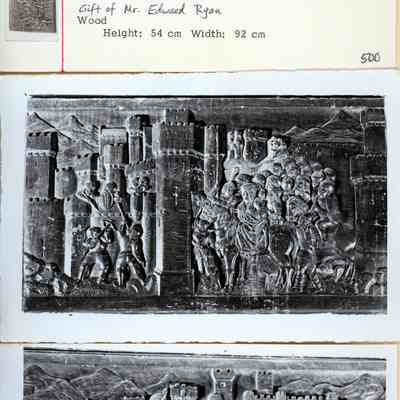 Gift of Mr. Edward Ryan
Wood
Height: 54 cm Width: 92 cm
500